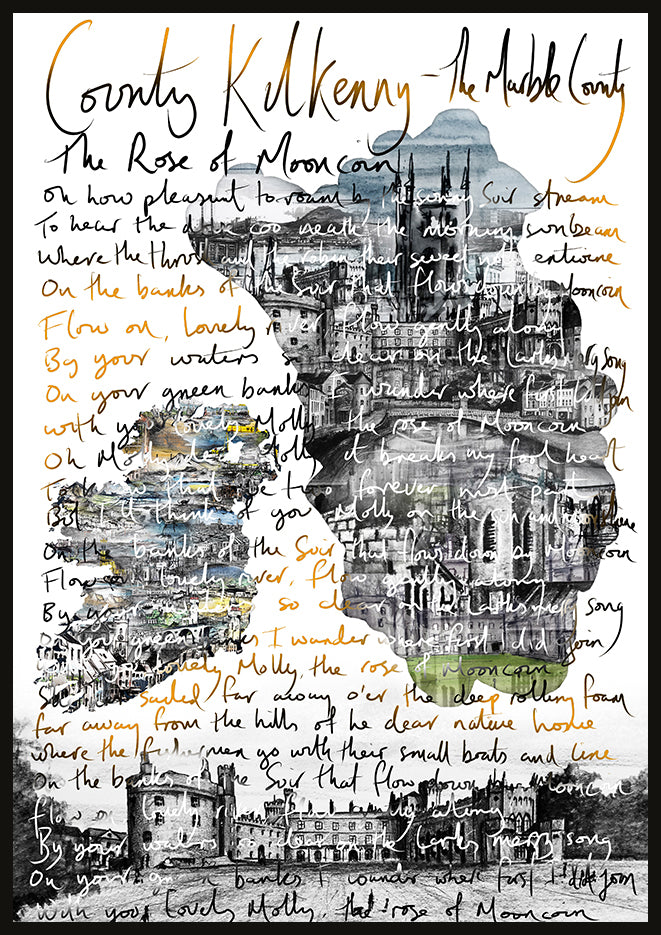 County Kilkenny - The Marble County
The Rose of Mooncoin
Oh how pleasant to roam b the sunny Suir stream
To hear the d coo neath the morning sunbeam
Where the thrus and the robin their sweet not entwine
On the banks of the Suir that flows down by Mooncoin
Flow on, lovely river flow gently along
By your waters so clear on the larks ry song
On your green banks I wander where first
with you lovely Molly the rose of Mooncoin
Oh Molly dear Molly it breaks my fond heart
To that we two forever must part
But I'll think of you Molly
On the banks of the Suir that flows down by Mooncoin
Flow on lovely river, flow gently along
By your so clear larks merry song
On your green banks I wander where first did join
lovely Molly, the rose of Mooncoin
sailed far away o'er the deep rolling foam
far away from the hills of he dear native home
where the fishermen go with their small boats and line
On the banks of the Suir that flow down by Mooncoin
Flow on lovely river flow along
By your waters so clear larks merry song
On your banks I wander where first did join
With you lovely Molly, the rose of Mooncoin